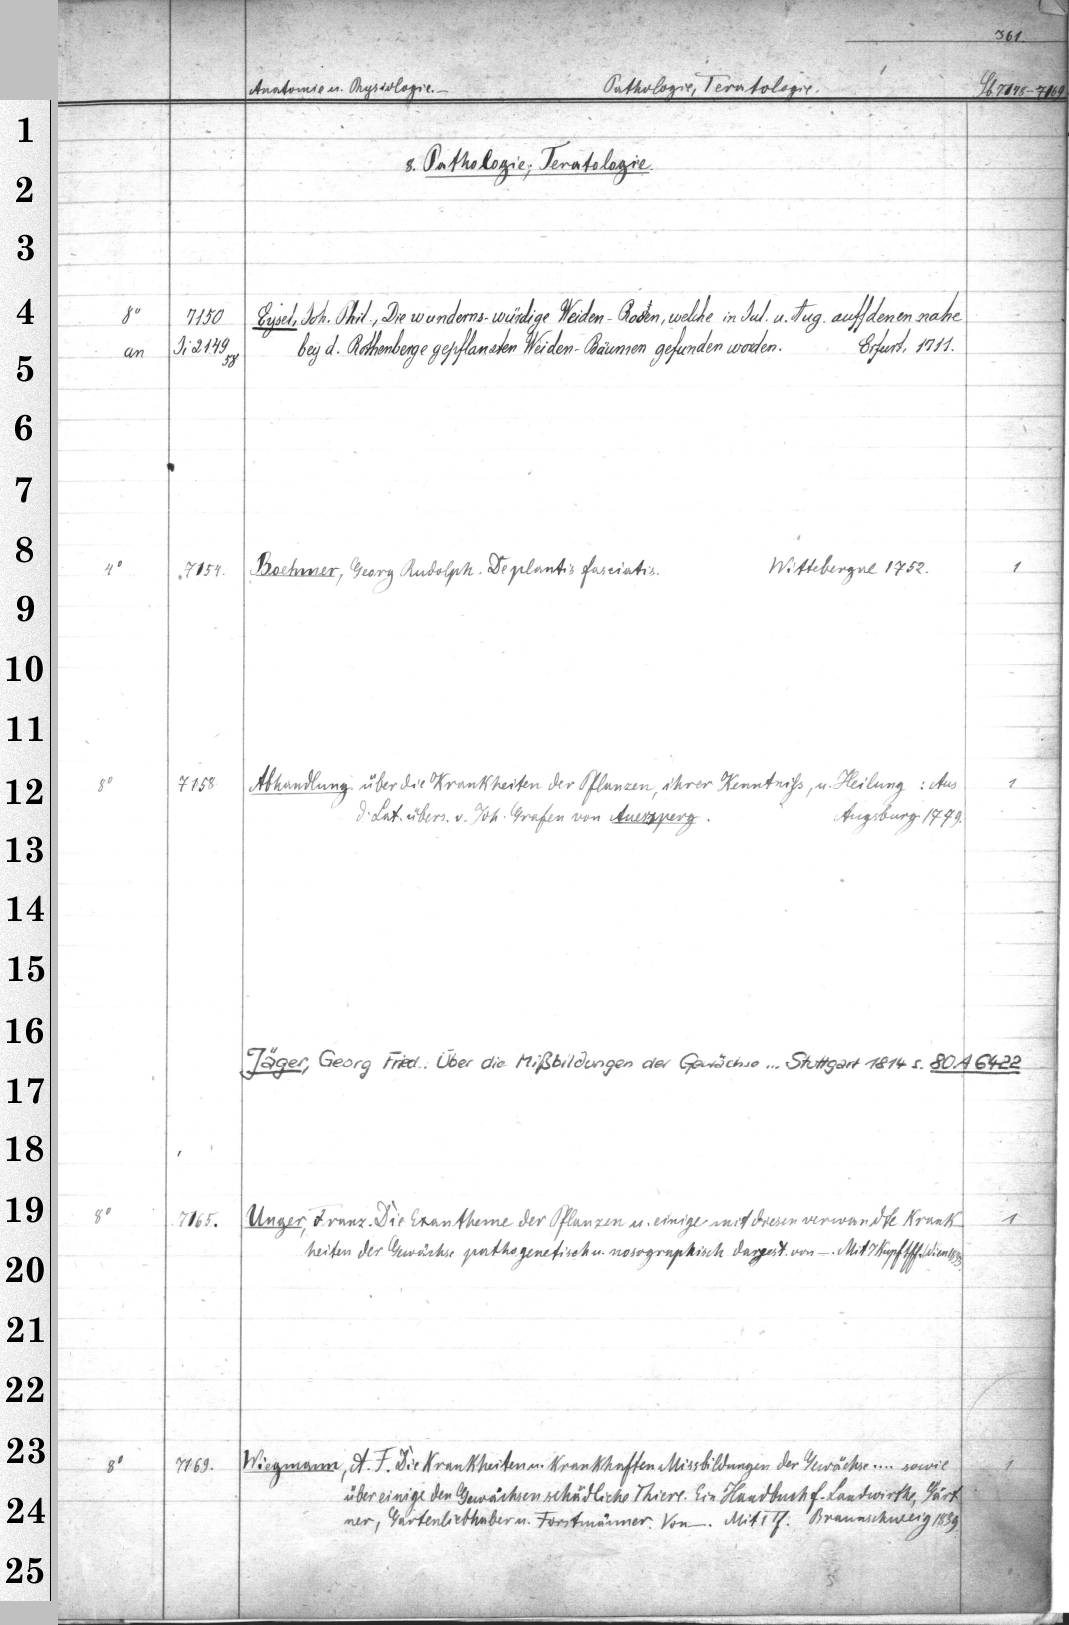 361
Anatomie u. Physiologie. — Pathologie, Teratologie. Lb 7148-7169
1
8. Pathologie, Teratologie.
2
3
4 8° 7150 Eysel, Joh. Phil., Die wunderns-würdige Weiden-Rosen, welche in Jul. u. Aug. auff denen nahe
an Ji 2149 58 bey d. Rothenberge gepflanzten Weiden-Bäumen gefunden worden. Erfurt, 1711.
5
6
7
8 4° 7154. Boehmer, Georg Rudolph. De plantis fasciatis. Wittebergae 1752. 1
9
10
11
12 8° 7158 Abhandlung über die Krankheiten der Pflanzen, ihrer Kenntniß, u. Heilung : Aus 1
d. Lat. übers. v. Joh. Grafen von Auersperg. Augsburg 1779.
13
14
15
16
Jäger, Georg Fried.: Über die Mißbildungen der Gewächse ... Stuttgart 1814 s. 80 A 6422
17
18
19 8° 7165. Unger, Franz. Die Exantheme der Pflanzen u. einige mit diesen verwandte Krank 1
heiten der Gewächse pathogenetisch u. nosographisch dargest. von —. Mit 7 Kupftff. Wien 1833.
20
21
22
23 8° 7169. Wiegmann, A. F. Die Krankheiten u. krankhaften Missbildungen der Gewächse .... sowie 1
über einige den Gewächsen schädliche Thiere. Ein Handbuch f. Landwirthe, Gärt
24 ner, Gartenliebhaber u. Forstmänner. Von —. Mit 1 Tf. Braunschweig 1839
25